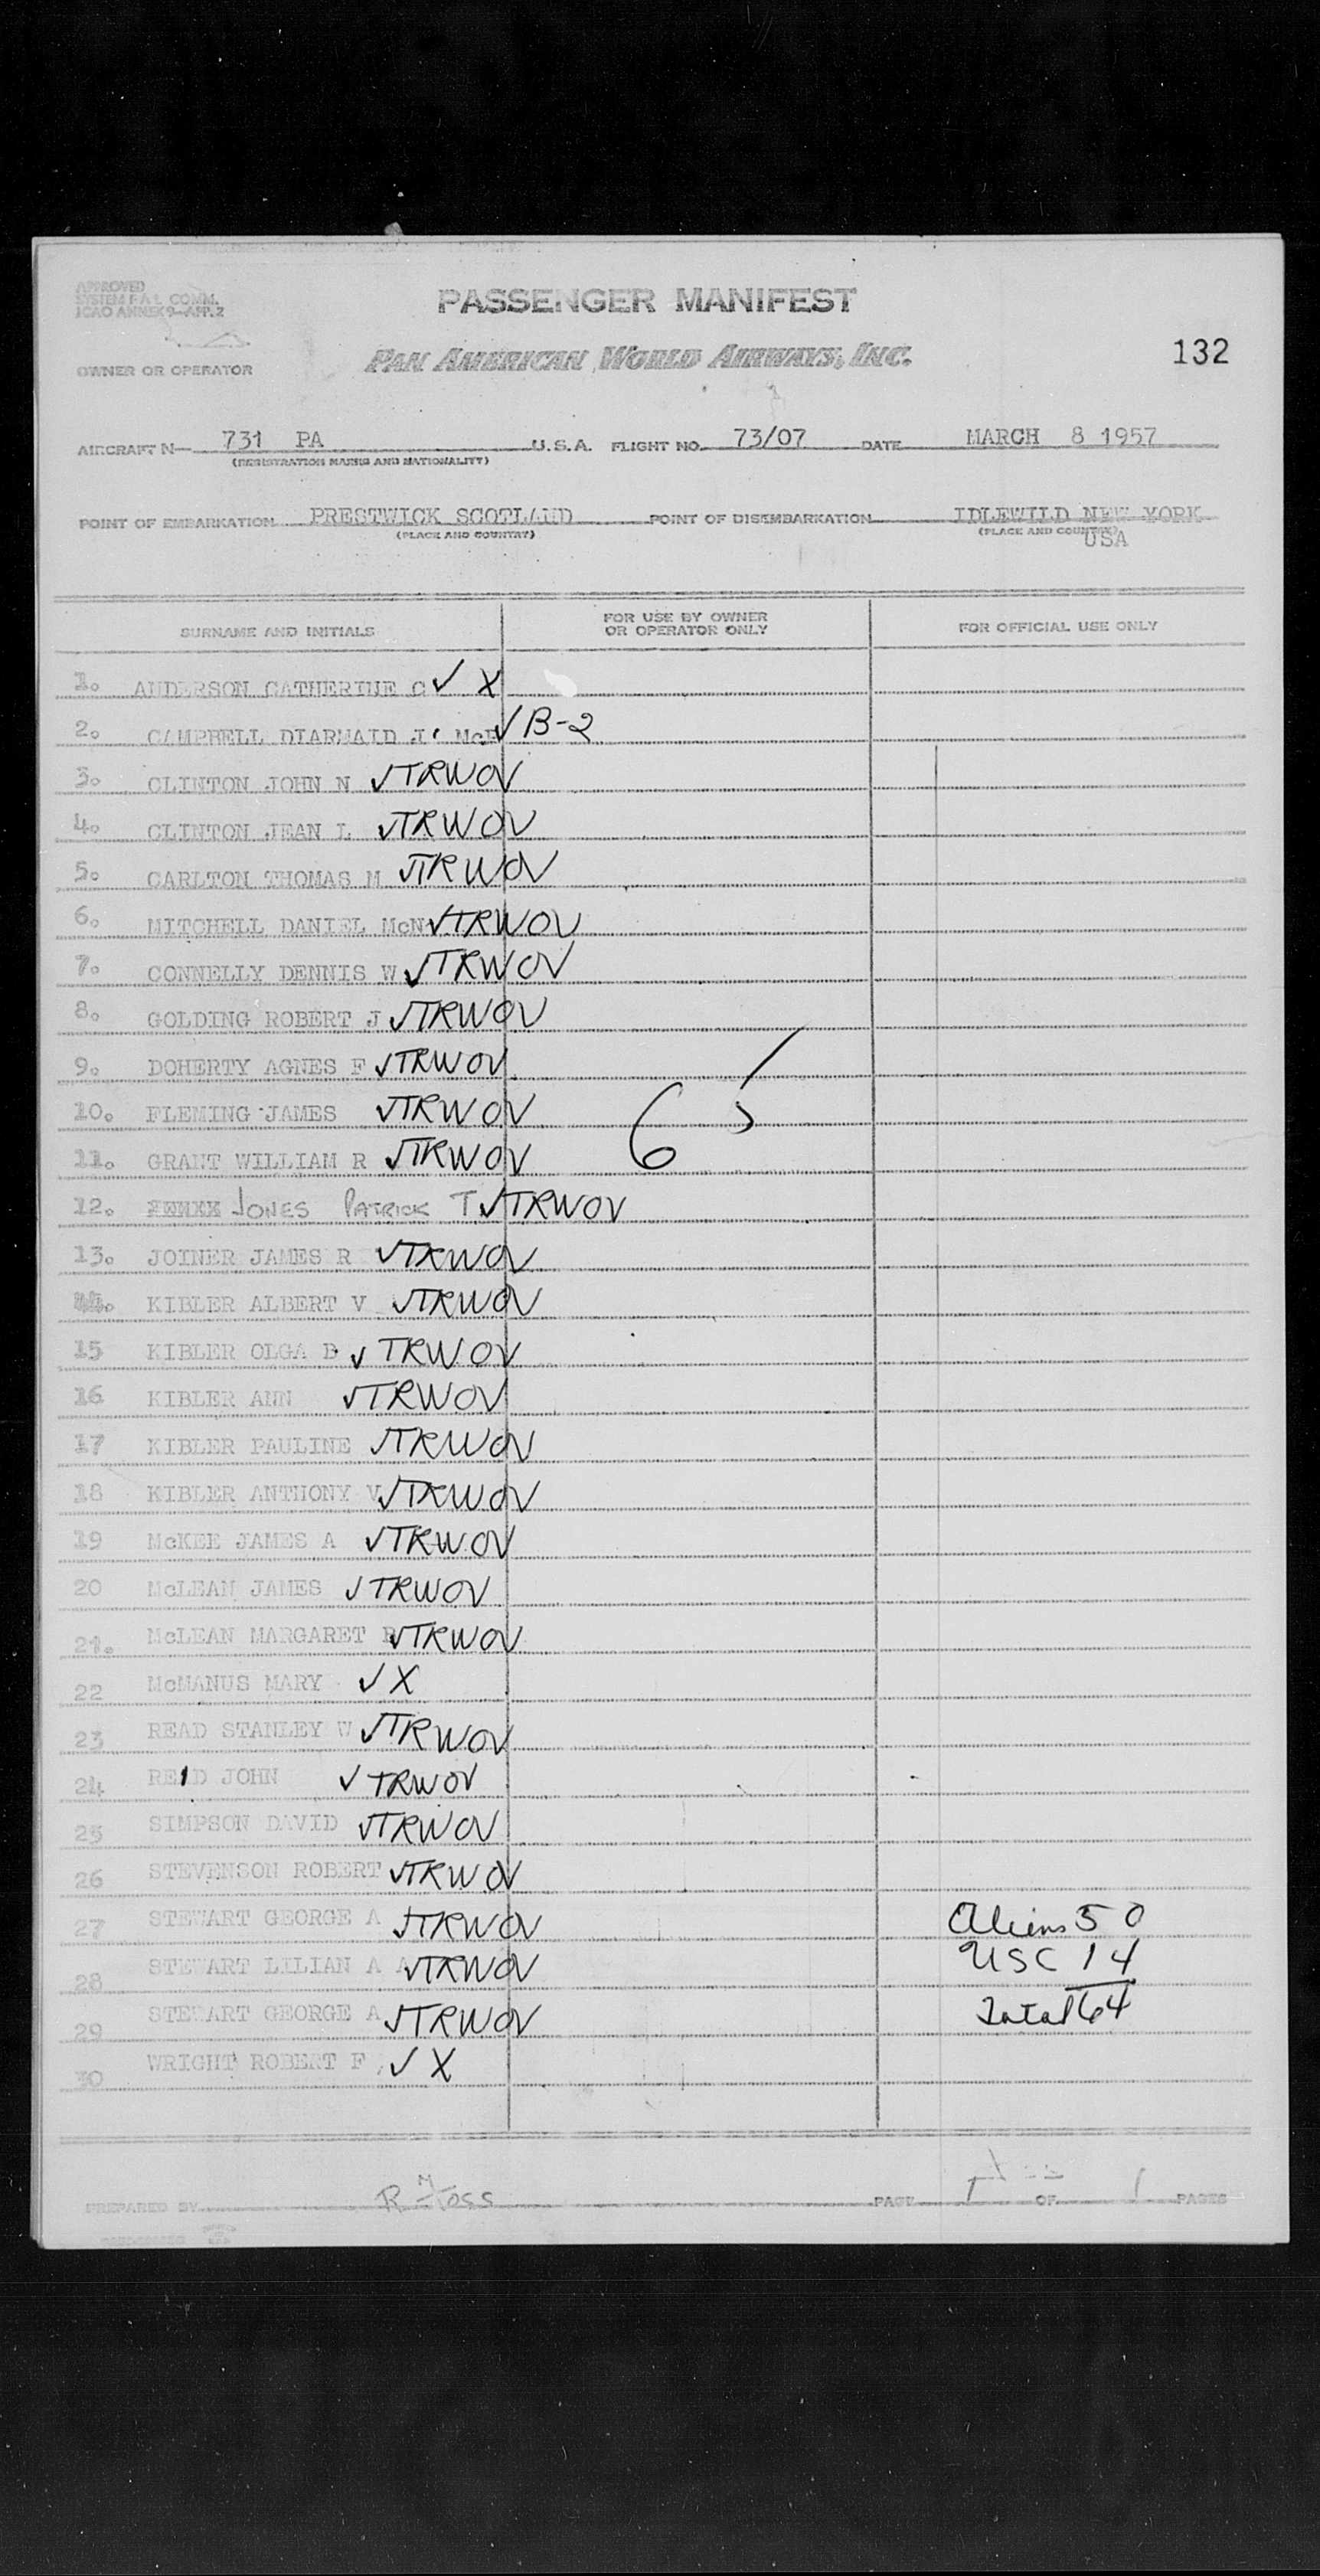 APPROVED
SYSTEM F A L COMM.
ICAO ANNEX 9-APP. 2
PASSENGER MANIFEST
PAN AMERICAN WORLD AIRWAYS, INC.
132
OWNER OR OPERATOR
AIRCRAFT N— 731 PA U.S.A. FLIGHT NO. 73/07 DATE MARCH 8 1957
(REGISTRATION MARKS AND NATIONALITY)
POINT OF EMBARKATION PRESTWICK SCOTLAND POINT OF DISEMBARKATION IDLEWILD NEW YORK
(PLACE AND COUNTRY) (PLACE AND COUNTRY) USA
SURNAME AND INITIALS FOR USE BY OWNER OR OPERATOR ONLY FOR OFFICIAL USE ONLY
1. ANDERSON CATHERINE C ✓ X
2. CAMPBELL DIARMAID J. McE ✓ B-2
3. CLINTON JOHN N ✓ TRWOV
4. CLINTON JEAN L ✓ TRWOV
5. CARLTON THOMAS M ✓ TRWOV
6. MITCHELL DANIEL McN ✓ TRWOV
7. CONNELLY DENNIS W ✓ TRWOV
8. GOLDING ROBERT J ✓ TRWOV
9. DOHERTY AGNES F ✓ TRWOV
10. FLEMING JAMES ✓ TRWOV
65
11. GRANT WILLIAM R ✓ TRWOV
12. JONES PATRICK T ✓ TRWOV
13. JOINER JAMES R ✓ TRWOV
14. KIBLER ALBERT V ✓ TRWOV
15 KIBLER OLGA B ✓ TRWOV
16 KIBLER ANN ✓ TRWOV
17 KIBLER PAULINE ✓ TRWOV
18 KIBLER ANTHONY V ✓ TRWOV
19 McKEE JAMES A ✓ TRWOV
20 McLEAN JAMES ✓ TRWOV
21. McLEAN MARGARET ✓ TRWOV
22 McMANUS MARY ✓ X
23 READ STANLEY W ✓ TRWOV
24 REID JOHN ✓ TRWOV
25 SIMPSON DAVID ✓ TRWOV
26 STEVENSON ROBERT ✓ TRWOV
27 STEWART GEORGE A ✓ TRWOV Aliens 50
28 STEWART LILIAN A A ✓ TRWOV USC 14
29 STEWART GEORGE A ✓ TRWOV Total 64
30 WRIGHT ROBERT F ✓ X
PREPARED BY R Moss PAGE 1 OF 1 PAGES